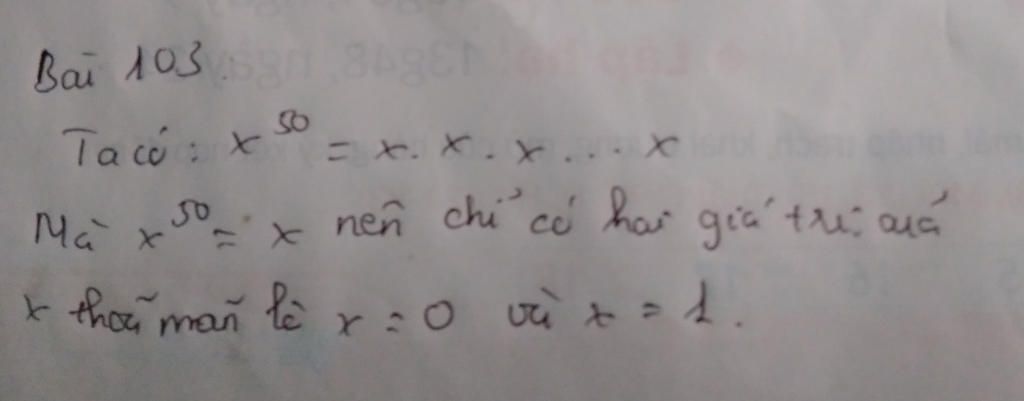 Bài 103.
Ta có : x⁵⁰ = x . x . x ... x
Mà x⁵⁰ = x nên chỉ có hai giá trị quả
x thoã mãn là x = 0 và x = 1 .